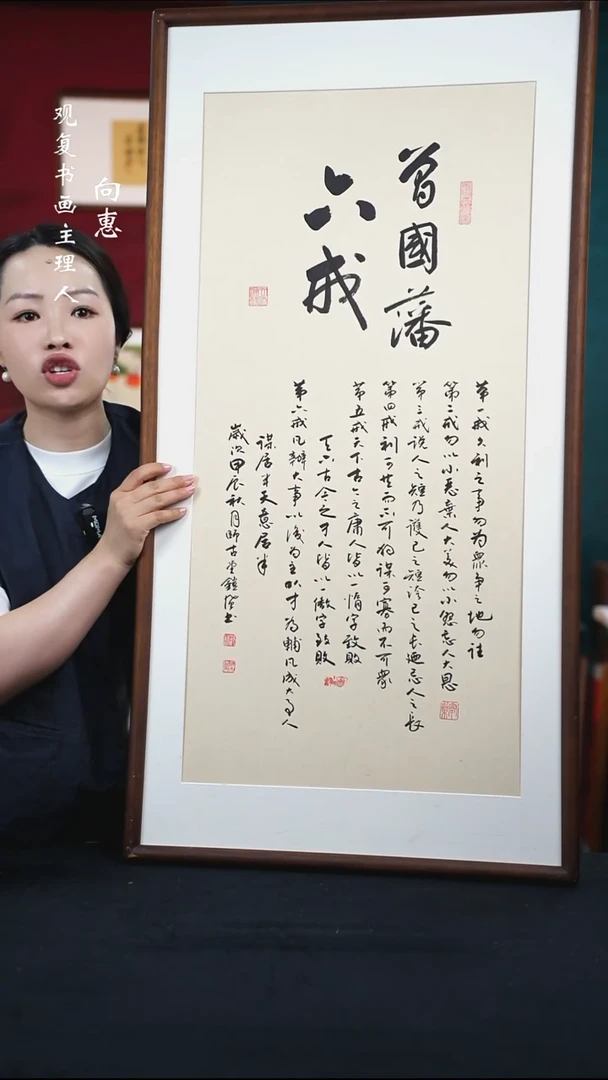 向惠
观复书画主理人
曾國藩
六戒
第一戒久利之事勿为眾争之地勿往
第二戒勿以小恶棄人大美勿以小怨忘人大恩
第三戒说人之短乃護己之短夸己之长迺忌人之長
第四戒利可共而不可独谋可寡而不可眾
第五戒天下古今之庸人皆以一惰字致敗
天下古今之才人皆以一傲字致敗
第六戒凡辦大事以識为主以才为輔凡成大事人
谋居半天意居半
歲次甲辰秋月昕古堂鎮书